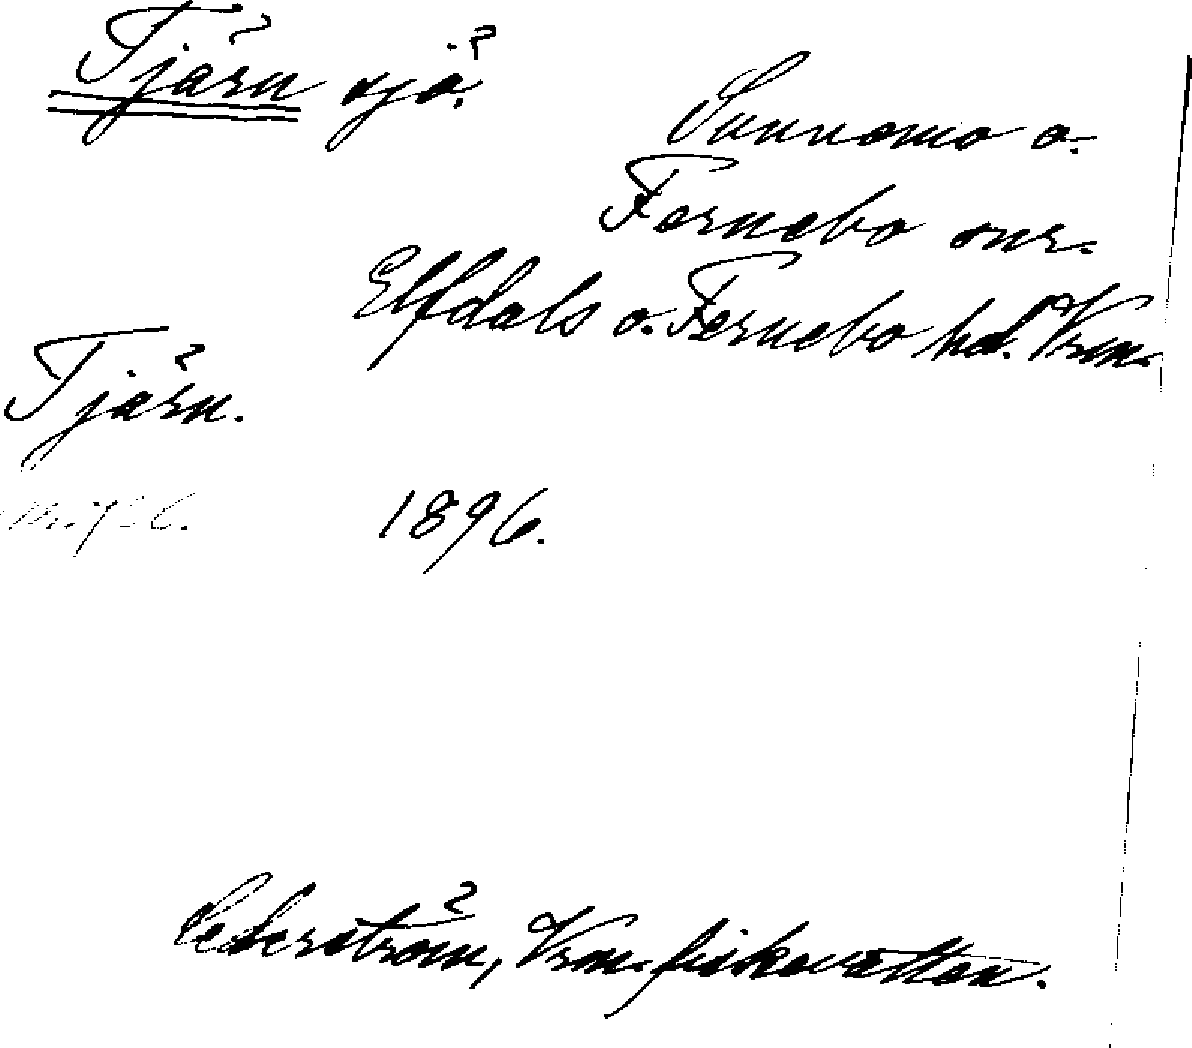 Tjärn sjö.
Sunnemo o.
Fernebo snr.
Elfdals o. Fernebo hd. Vrm.
Tjärn.
1896.
Cederström, Vrm. fiskevatten.